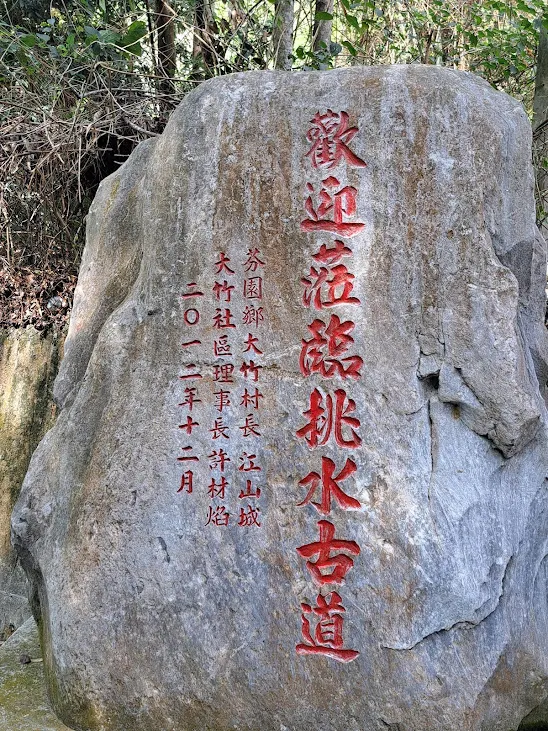 歡迎蒞臨挑水古道
芬園鄉大竹村長 江山城
大竹社區理事長 許材焰
二〇一二年十二月